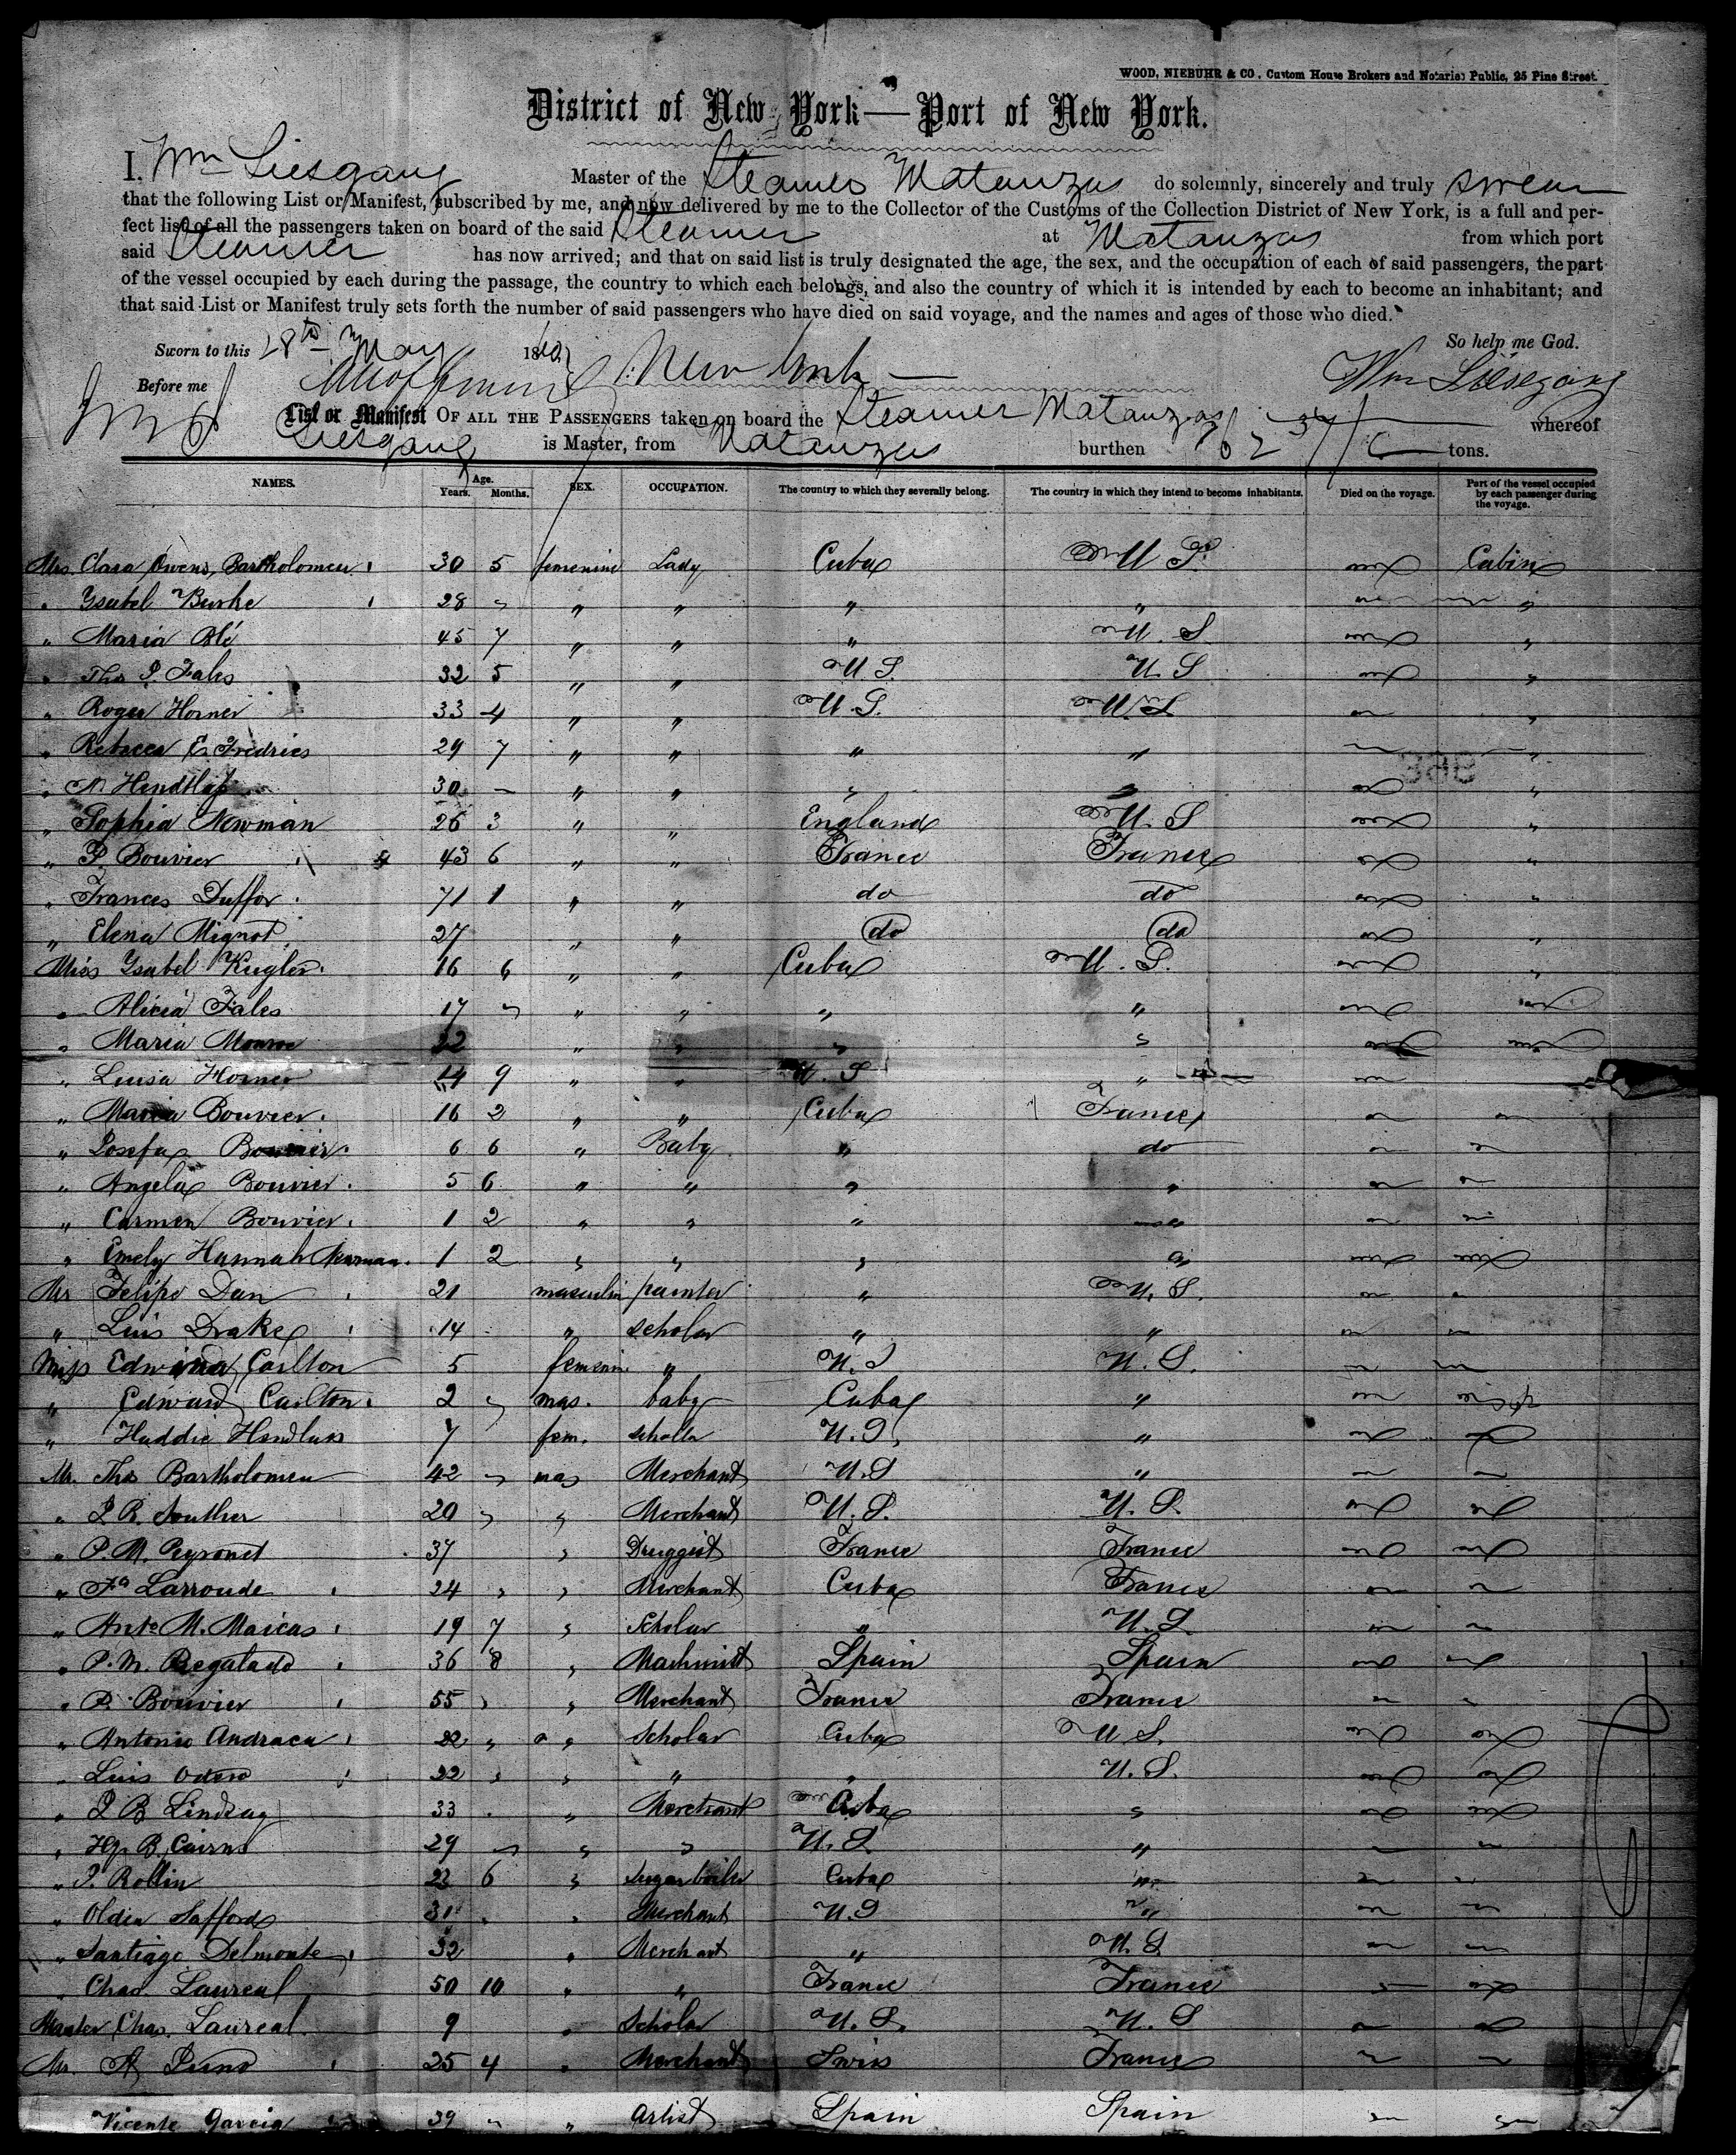 WOOD, NIEBUHR & CO. Custom House Brokers and Notaries Public, 25 Pine Street.
District of New York—Port of New York.
I, Wm Liesgang Master of the Steamer Matanzas do solemnly, sincerely and truly swear
that the following List or Manifest, subscribed by me, and now delivered by me to the Collector of the Customs of the Collection District of New York, is a full and per-
fect list of all the passengers taken on board of the said Steamer at Matanzas from which port
said Steamer has now arrived; and that on said list is truly designated the age, the sex, and the occupation of each of said passengers, the part
of the vessel occupied by each during the passage, the country to which each belongs, and also the country of which it is intended by each to become an inhabitant; and
that said List or Manifest truly sets forth the number of said passengers who have died on said voyage, and the names and ages of those who died.
Sworn to this 28th May 186 So help me God.
Before me New York Wm Liesegang
List or Manifest OF ALL THE PASSENGERS taken on board the Steamer Matanzas whereof
Liesgang is Master, from Matanzas burthen tons.
NAMES. Age. Years. Months. SEX. OCCUPATION. The country to which they severally belong. The country in which they intend to become inhabitants. Died on the voyage. Part of the vessel occupied by each passenger during the voyage.
Mrs. Clara Owens Bartholomew 30 5 femenine Lady Cuba U S. Cabin
" Ysabel Burke 28 " " " " "
" Maria Blé 45 7 " " " U. S "
" Tho P. Fales 32 5 " " U S. U. S "
" Roger Horner 33 4 " " U. S. U. S "
" Rebecca E. Fredrics 29 7 " " " " "
" N. 30 — " " " " "
" Sophia Newman 26 3 " " England U. S "
" P. Bouvier 43 6 " " France France "
" Frances Duffor 71 1 " " do do "
" Elena Mignot 27 " " do do "
Miss Ysabel Kugler 16 6 " " Cuba U. S. "
" Alicia Fales 17 " " " "
" Maria Monroe 22 " " " "
" Luisa Horner 14 9 " " U. S "
" Maria Bouvier 16 2 " " Cuba France
" Josefa Bouvier 6 6 " Baby " do
" Angela Bouvier 5 6 " " " "
" Carmen Bouvier 1 2 " " " "
" Emely Hannah Newman 1 2 " " " "
Mr Felipe Dan 21 masculin painter " U. S.
" Luis Drake 14 " scholar " "
Miss Edwina Carlton 5 femenin " U. S U. S.
" Edward Carlton 2 mas. baby Cuba "
" Haddie 7 fem. scholar U. S. "
Mr. Tho Bartholomew 42 mas Merchant U. S "
" J. R. Souther 20 " Merchant U. S. U. S.
" P. M. Peyronet 37 " Druggist France France
" Fo Larroude 24 " Merchant Cuba France
" Anto M. Maicas 19 7 " Scholar " U. S.
" P. M. Regalado 36 8 " Machinist Spain Spain
" P. Bouvier 55 " Merchant France France
" Antonio Andraca 22 " " Scholar Cuba U S.
" Luis Odero 22 " " " " U. S.
" J B Lindsay 33 " Merchant Cuba "
" B. Cairns 29 " " U. S. "
" J. Rollin 23 6 " Sugar boiler Cuba "
" Olden Safford 31 " Merchant U. S "
" Santiago Delmonte 32 " Merchant " U. S
" Chas. Laureal 50 10 " " France France
Master Chas. Laureal 9 " Scholar U. S. U. S
Mr. A. 25 4 " Merchant Swiss France
Vicente Garcia 39 " " Artist Spain Spain